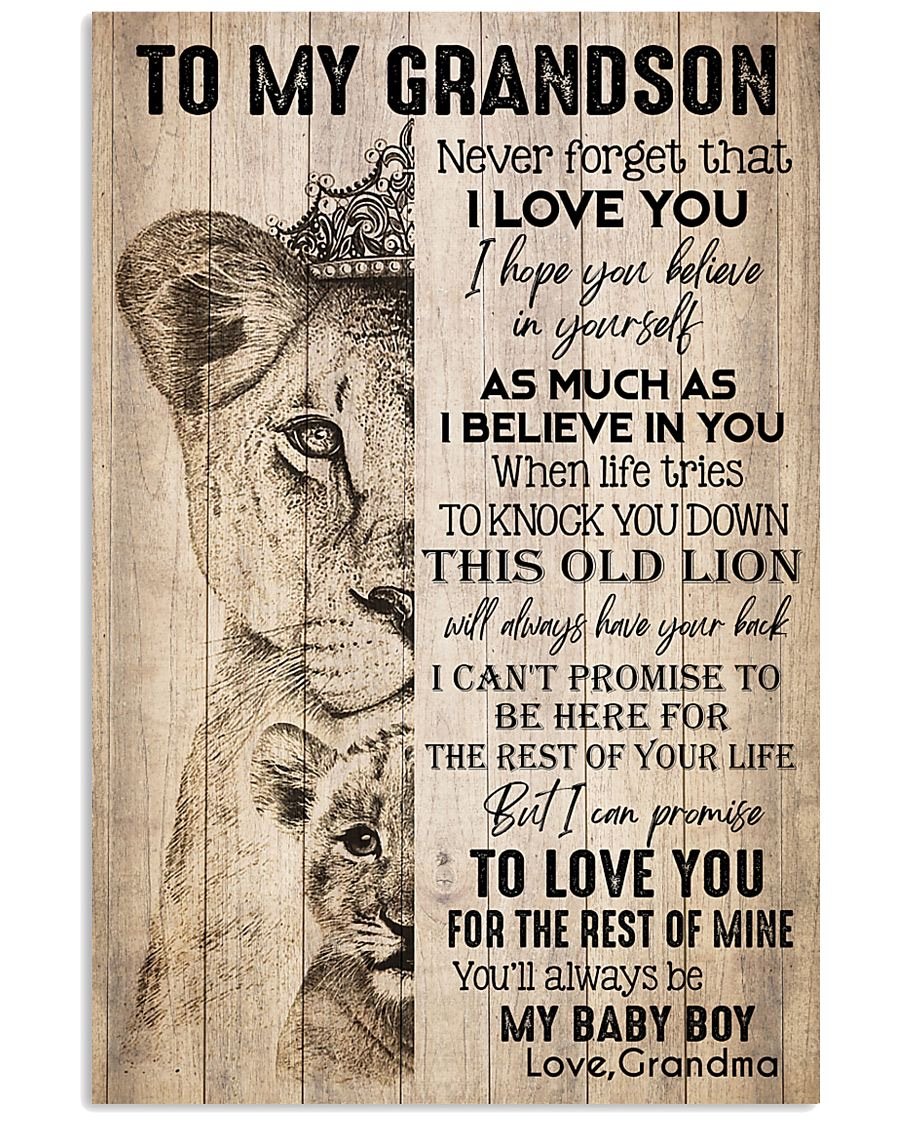 TO MY GRANDSON
Never forget that
I LOVE YOU
I hope you believe
in yourself
AS MUCH AS
I BELIEVE IN YOU
When life tries
TO KNOCK YOU DOWN
THIS OLD LION
will always have your back
I CAN'T PROMISE TO
BE HERE FOR
THE REST OF YOUR LIFE
But I can promise
TO LOVE YOU
FOR THE REST OF MINE
You'll always be
MY BABY BOY
Love,Grandma